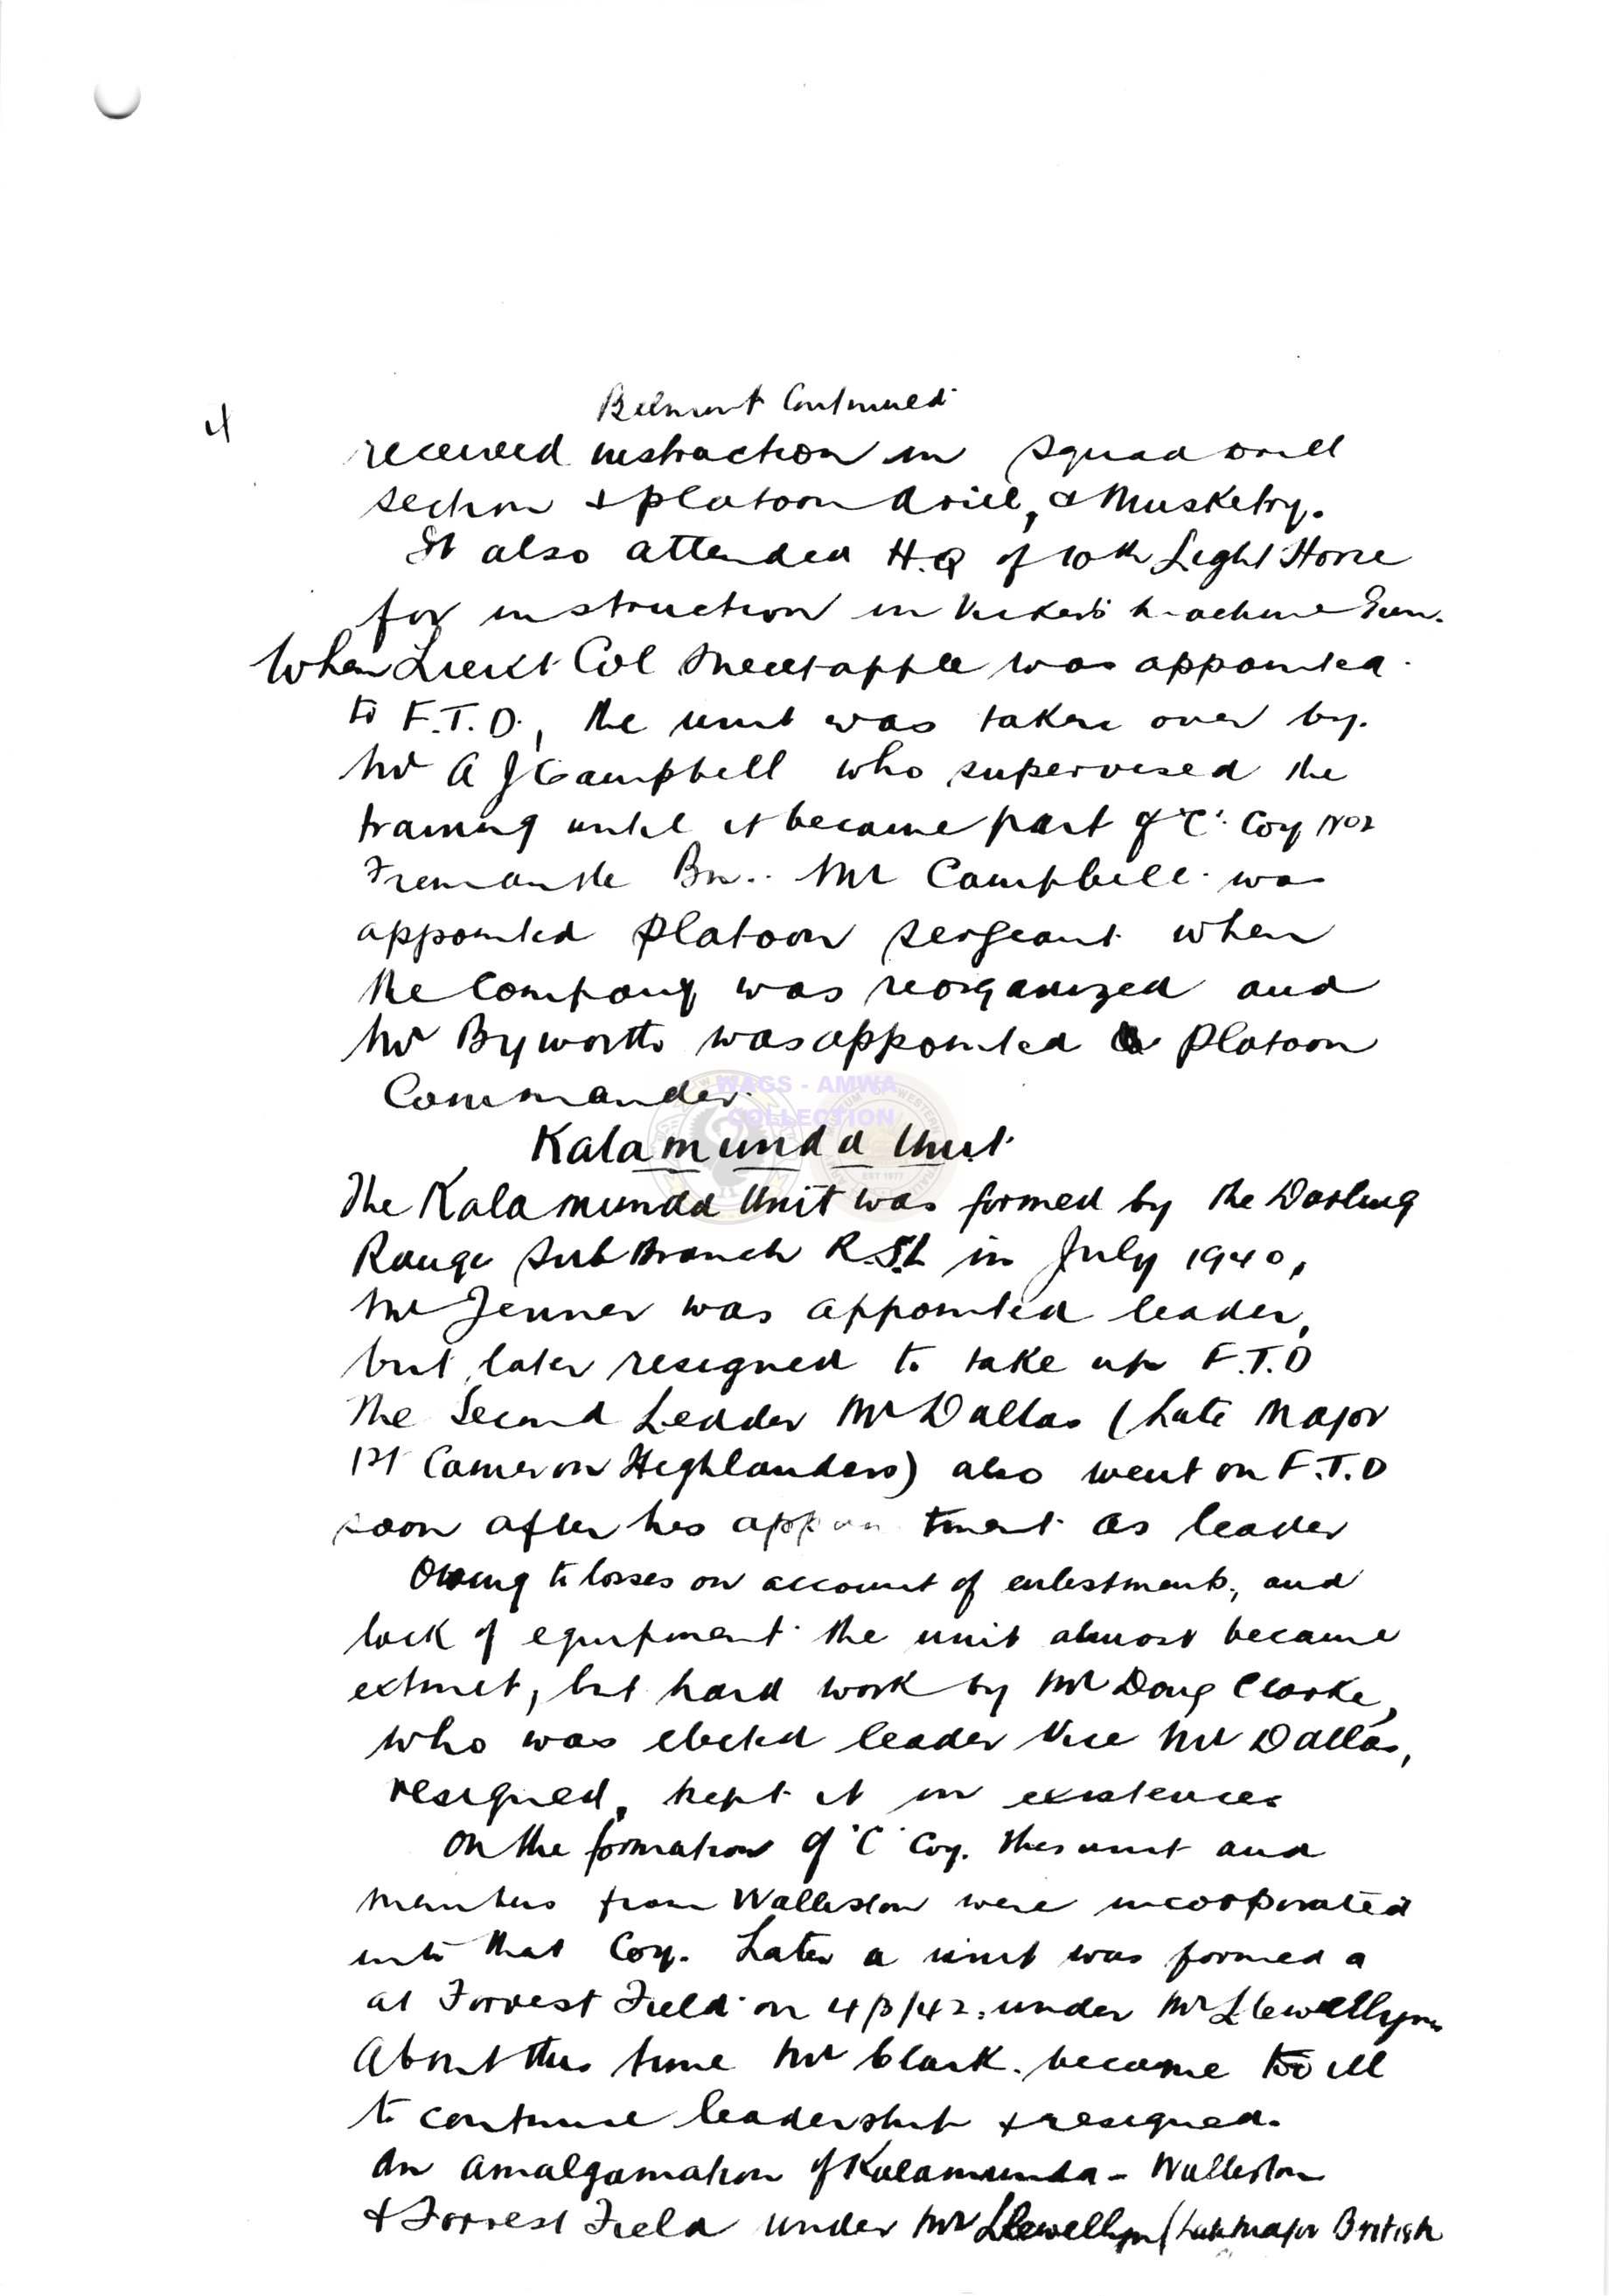 Belmont Continued
4
received instruction in squad drill
section & platoon drill, & Musketry.
It also attended H.Q of 10th Light Horse
for instruction in Vickers Machine Gun.
When Lieut Col Sweetapple was appointed
to F.T.D., the unit was taken over by
Mr A J Campbell who supervised the
training until it became part of 'C' Coy No 2
Fremantle Bn.. Mr Campbell was
appointed Platoon Sergeant when
the Company was reorganized and
Mr Byworth was appointed Platoon
Commander.
WAGS - AMWA
COLLECTION
Kalamunda Unit
The Kalamunda Unit was formed by the Darling
Range Sub Branch R.S.L in July 1940,
Mr Jenner was appointed leader,
but later resigned to take up F.T.D
The Second Leader Mr Dallas (Late Major
1st Cameron Highlanders) also went on F.T.D
soon after his appointment as leader
Owing to losses on account of enlistments, and
lack of equipment the unit almost became
extinct, but hard work by Mr Doug Clarke,
who was elected leader Vice Mr Dallas,
resigned, kept it in existence
On the formation of 'C' Coy. this unit and
members from Walliston were incorporated
into that Coy. Later a unit was formed a
at Forrest Field on 4/3/42. under Mr Llewellyn
About this time Mr Clark. became too ill
to continue leadership & resigned.
An amalgamation of Kalamunda - Walliston
& Forrest Field under Mr Llewellyn (Late Major British